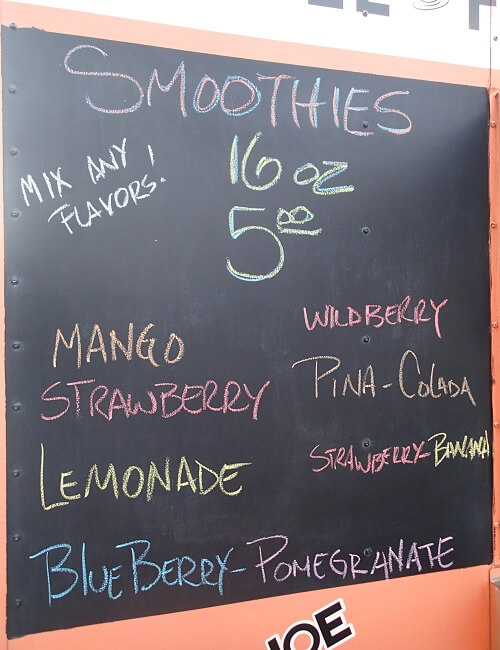 SMOOTHIES
16 oz
5
MIX ANY !
FLAVORS.
MANGO
STRAWBERRY
LEMONADE
BLUEBERRY-POMEGRANATE
WILDBERRY
PINA-COLADA
STRAWBERRY-BANANA
JOE